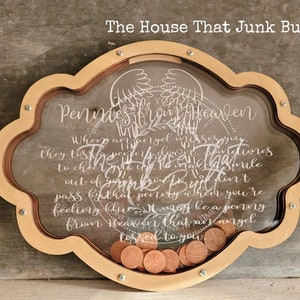 The House That Junk Bu
Pennies from Heaven
When an angel misses you
they toss a penny down
to cheer you smile
out of you don't
pass by that penny when you're
feeling blue It may be a penny
from Heaven that an angel
tossed to you
The House That
Junk Built